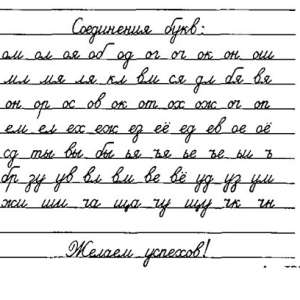 Соединения букв:
ом ол оя об од ог ог ок он ош
мл мя ля кл вм ся дл бя вя
он ор ос ов ок от ох ож ог оп
ем ел ех еж ез её ед ев ое оё
сд ты вы бы ья ъя ье ъе ьи ъ
бр зу ув вл вм ве вё уд уз ум
жи ши ча ща чу щу чк чн
Желаем успехов!